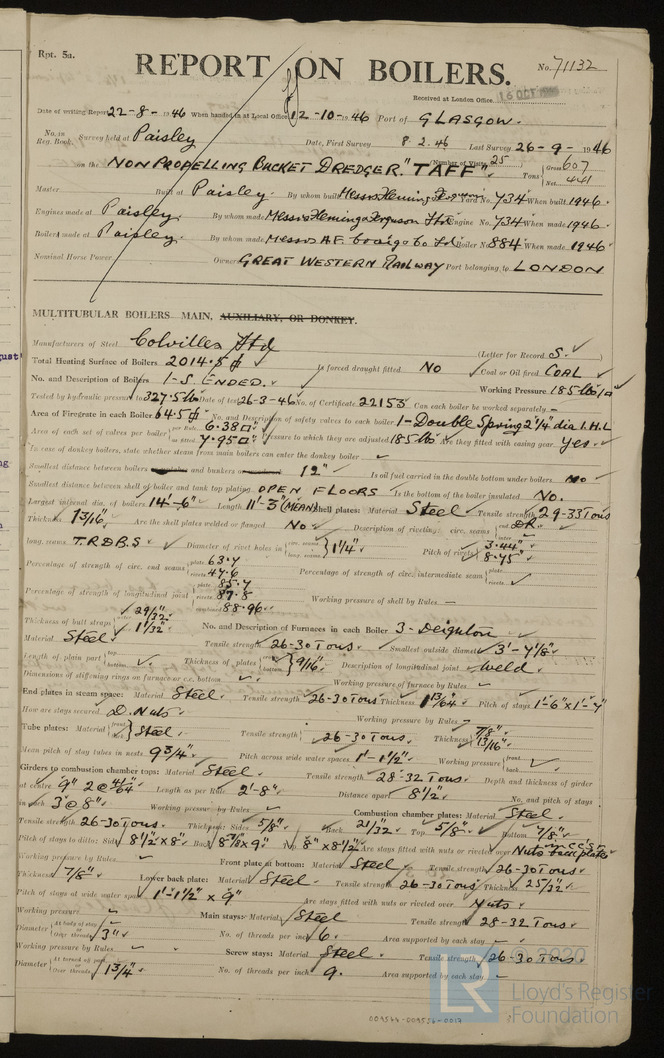 Rpt. 5a.
REPORT ON BOILERS.
No. 71132
Received at London Office 16 OCT
Date of writing Report 22-8-1946 When handed in at Local Office 12-10-1946 Port of GLASGOW.
No. in Reg. Book. Survey held at Paisley Date, First Survey 8.2.46 Last Survey 26-9-1946
on the NON PROPELLING BUCKET DREDGER "TAFF" (Number of Visits 25) Tons Gross 607 Net 441
Master Built at Paisley By whom built Messrs Fleming & Ferguson Yard No. 734 When built 1946
Engines made at Paisley By whom made Messrs Fleming & Ferguson Ltd Engine No. 734 When made 1946
Boilers made at Paisley By whom made Messrs A.F. Craig & Co Ltd Boiler No 884 When made 1946
Nominal Horse Power Owners GREAT WESTERN RAILWAY Port belonging to LONDON
MULTITUBULAR BOILERS MAIN, AUXILIARY, OR DONKEY.
Manufacturers of Steel Colvilles Ltd (Letter for Record S.)
Total Heating Surface of Boilers 2014.5 Is forced draught fitted NO Coal or Oil fired COAL
No. and Description of Boilers 1-S. ENDED. Working Pressure 185 lb/□"
Tested by hydraulic pressure to 327.5 lb Date of test 26-3-46 No. of Certificate 22153 Can each boiler be worked separately -
Area of Firegrate in each Boiler 64.5 No. and Description of safety valves to each boiler 1-Double Spring 2 1/4" dia I.H.L
Area of each set of valves per boiler per Rule 6.38□" as fitted 7.95□" Pressure to which they are adjusted 185 lb Are they fitted with easing gear Yes
In case of donkey boilers, state whether steam from main boilers can enter the donkey boiler
Smallest distance between boilers and bunkers 12" Is oil fuel carried in the double bottom under boilers No
Smallest distance between shell of boiler and tank top plating OPEN FLOORS Is the bottom of the boiler insulated NO.
Largest internal dia. of boilers 14'-6" Length 11'-3" (MEAN) Shell plates: Material Steel Tensile strength 29-33 Tons
Thickness 1 3/16" Are the shell plates welded or flanged No Description of riveting: circ. seams end DR. inter
long. seams T.R.D.B.S Diameter of rivet holes in circ. seams long. seams 1 1/4" Pitch of rivets 3.44" 8.75"
Percentage of strength of circ. end seams plate 63.7 rivets 47.6 Percentage of strength of circ. intermediate seam plate rivets
Percentage of strength of longitudinal joint plate 85.7 rivets 87.8 combined 88.96 Working pressure of shell by Rules -
Thickness of butt straps outer 29/32" inner 1 1/32" No. and Description of Furnaces in each Boiler 3-Deighton
Material Steel Tensile strength 26-30 Tons Smallest outside diameter 3'-7 1/8"
Length of plain part top bottom Thickness of plates crown bottom 9/16" Description of longitudinal joint Weld
Dimensions of stiffening rings on furnace or c.c. bottom Working pressure of furnace by Rules
End plates in steam space: Material Steel Tensile strength 26-30 Tons Thickness 1 13/64" Pitch of stays 1'-6" x 1'-7"
How are stays secured D. Nuts Working pressure by Rules
Tube plates: Material front back Steel Tensile strength 26-30 Tons Thickness 7/8" 13/16"
Mean pitch of stay tubes in nests 9 3/4" Pitch across wide water spaces 1'-1 1/2" Working pressure front back
Girders to combustion chamber tops: Material Steel Tensile strength 28-32 Tons Depth and thickness of girder
at centre 9" 2 @ 41/64" Length as per Rule 2'-8" Distance apart 8 1/2" No. and pitch of stays
in each 3 @ 8" Working pressure by Rules Combustion chamber plates: Material Steel
Tensile strength 26-30 Tons Thickness: Sides 5/8" Back 21/32" Top 5/8" Bottom 7/8"
Pitch of stays to ditto: Sides 8 1/2" x 8" Back x 9" Top 8" x 8 1/2" Are stays fitted with nuts or riveted over Nuts in CC's
Working pressure by Rules Front plate at bottom: Material Steel Tensile strength 26-30 Tons
Thickness 7/8" Lower back plate: Material Steel Tensile strength 26-30 Tons Thickness 25/32"
Pitch of stays at wide water space 1'-1 1/2" x 9" Are stays fitted with nuts or riveted over Nuts
Working pressure Main stays: Material Steel Tensile strength 28-32 Tons
Diameter At body of stay or Over threads 3" No. of threads per inch 6. Area supported by each stay
Working pressure by Rules Screw stays: Material Steel Tensile strength 26-30 Tons
Diameter At turned off part or Over threads 1 3/4" No. of threads per inch 9. Area supported by each stay
© 2020
LR Lloyd's Register Foundation
009544-009556-0017